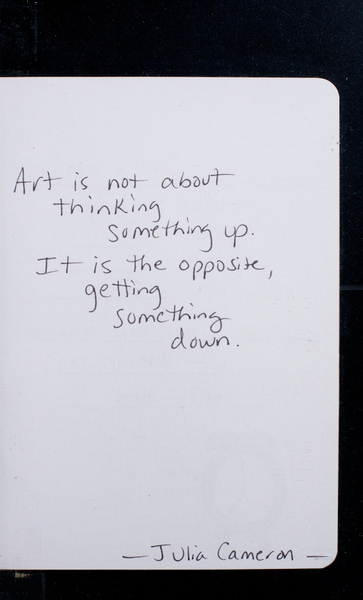 Art is not about
thinking
something up.
It is the opposite,
getting
something
down.
— Julia Cameron —